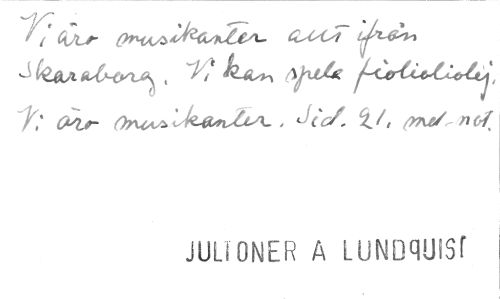 Vi äro musikanter allt ifrån
Skaraborg. Vi kan spela fiolioliolej.
Vi äro musikanter. Sid. 21. med not.
JULTONER A LUNDQUIST